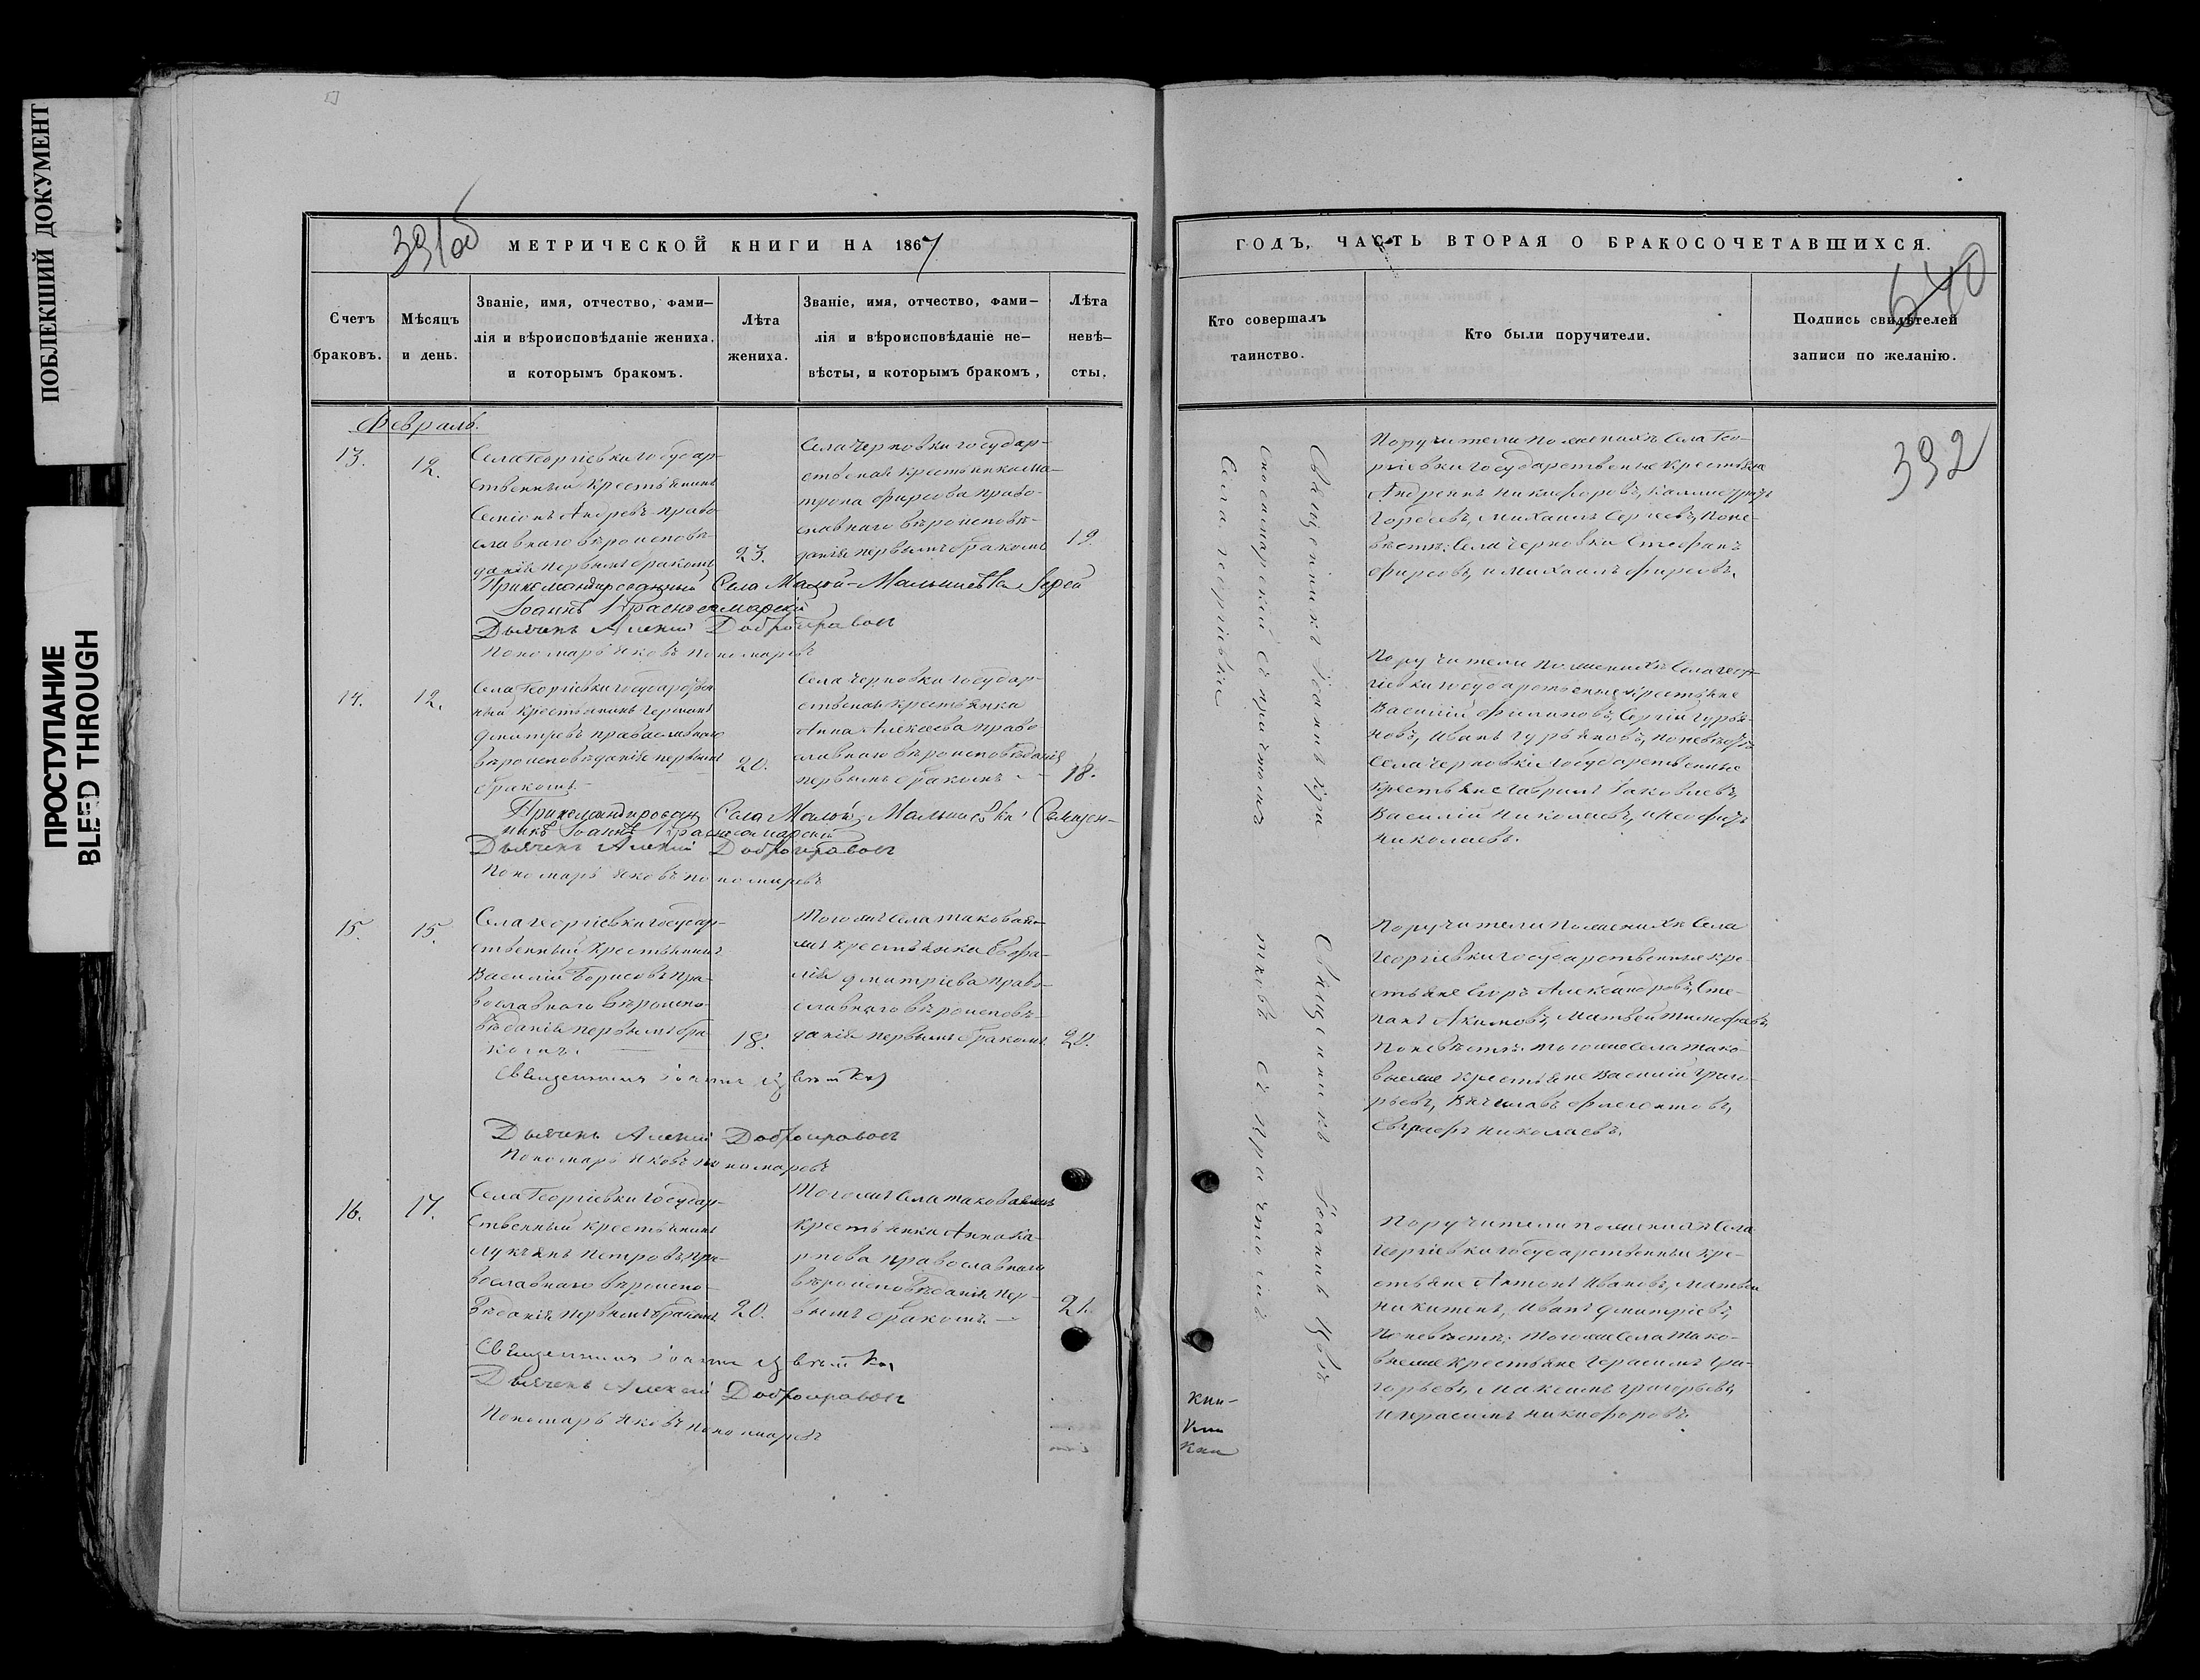 ПОБЛЕКШИЙ ДОКУМЕНТ
ПРОСТУПАНИЕ
BLEED THROUGH
391об
МЕТРИЧЕСКОЙ КНИГИ НА 1867
Счетъ браковъ.
Мѣсяцъ и день.
Званіе, имя, отчество, фами-
лія и вѣроисповѣданіе жениха,
и которымъ бракомъ.
Лѣта жениха.
Званіе, имя, отчество, фами-
лія и вѣроисповѣданіе не-
вѣсты, и которымъ бракомъ,
Лѣта невѣ-
сты.
Февраль.
13.
12.
Села Георгіевки государ-
ственный крестьянинъ
Семіонъ Андревъ право
славнаго вѣроисповѣ-
данія первымъ бракомъ
23.
Села Черновки государ-
ственая крестьянка Ма-
трона Фирсова право-
славнаго вѣроисповѣ-
данія первымъ бракомъ
19.
Прикомандированный Села Малой-Малышевки Іерей
Іоаннъ Красносамарскій
Дьячекъ Алексій Добронравовъ
Пономарь Яковъ Пономаревъ
14.
12.
Села Георгіевки государствен
ный крестьянинъ Германъ
Дмитревъ православнаго
вѣроисповѣданія первымъ
бракомъ
20.
Села Черновки государ-
ственая крестьянка
Анна Алексеева право
славнаго вѣроисповѣданія
первымъ бракомъ
18.
Прикомандирован Села Малой-Малышевки Священ-
никъ Іоаннъ Красносамарскій
Дьячекъ Алексій Добронравовъ
Пономарь Яковъ Пономаревъ
15.
15.
Села Георгіевки государ-
ственный крестьянинъ
Василій Борисовъ пра-
вославнаго вѣроиспо-
вѣданія первымъ бра-
комъ.
18.
Тогоже села таковая-
же крестьянка Евфра-
лія Дмитріева право-
славнаго вѣроисповѣ-
данія первымъ бракомъ.
Священникъ Іоаннъ
Дьячекъ Алексій Добронравовъ
Пономарь Яковъ Пономаревъ
16.
17.
Села Георгіевки государ-
ственный крестьянинъ
Лукьянъ Петровъ, пра-
вославнаго вѣроиспо-
вѣданія первымъ бракомъ
20.
Тогоже села таковаяже
крестьянка Анна Ка-
рпова православнаго
вѣроисповѣданія пер-
вымъ бракомъ
21.
Священникъ Іоаннъ
Дьячекъ Алексій Добронравовъ
Пономарь Яковъ Пономаревъ
ГОДЪ, ЧАСТЬ ВТОРАЯ О БРАКОСОЧЕТАВШИХСЯ.
640
Кто совершалъ
таинство.
Кто были поручители.
Подпись свидѣтелей
записи по желанію.
392
Священникъ Іоаннъ Кра
сносамарскій съ причтомъ
Села Георгіевки
Поручители по женихѣ Села Гео-
ргіевки государственные крестьяне
Андреянъ Никифоровъ,
Гордеевъ, Михаилъ Сергеевъ, По не-
вѣстѣ: Села Черновки Стефанъ
Фирсовъ, и Михаилъ Фирсовъ.
Поручители по женихѣ Села Геор-
гіевки государственные крестьяне
Василій Филиповъ, Сергій Гурья-
новъ, Иванъ Гурьяновъ, по невѣстѣ
Села Черновки государственные
крестьяне Гаврилъ Яковлевъ,
Василій Николаевъ, и
Николаевъ.
Поручители по женихѣ Села
Георгіевки государственныя кре-
стьяне Александровъ, Сте-
панъ Акимовъ, Матвей Тимофеевъ,
По невѣстѣ: тогоже села тако-
выеже крестьяне Василій Григо-
рьевъ,
Евграфъ Николаевъ.
Поручители по женихѣ Села
Георгіевки государственныя кре-
стьяне Антонъ Ивановъ, Матвей
Никитенъ, Иванъ Дмитріевъ,
По невѣстѣ: тогоже села тако-
выеже крестьяне Герасимъ Гри-
горьевъ, Максимъ Григорьевъ,
Никифоровъ.
Священникъ Іоаннъ
съ причтомъ